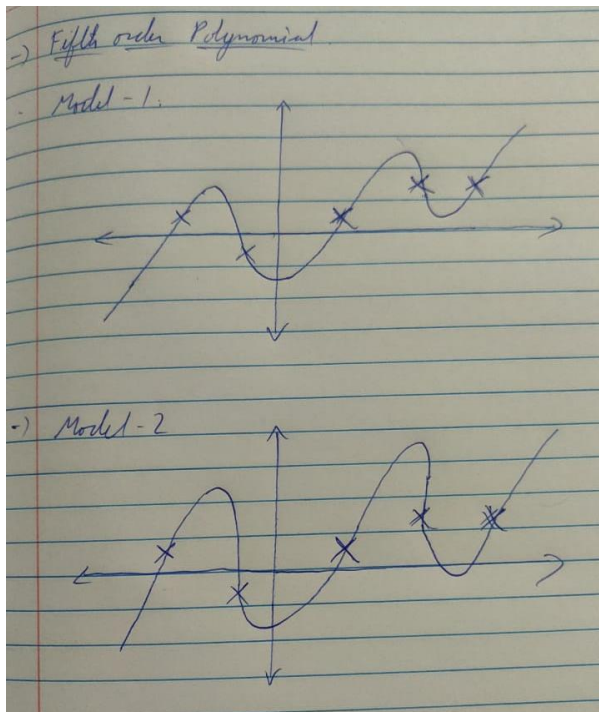 -) Fifth order Polynomial.
Model - 1.
-) Model - 2